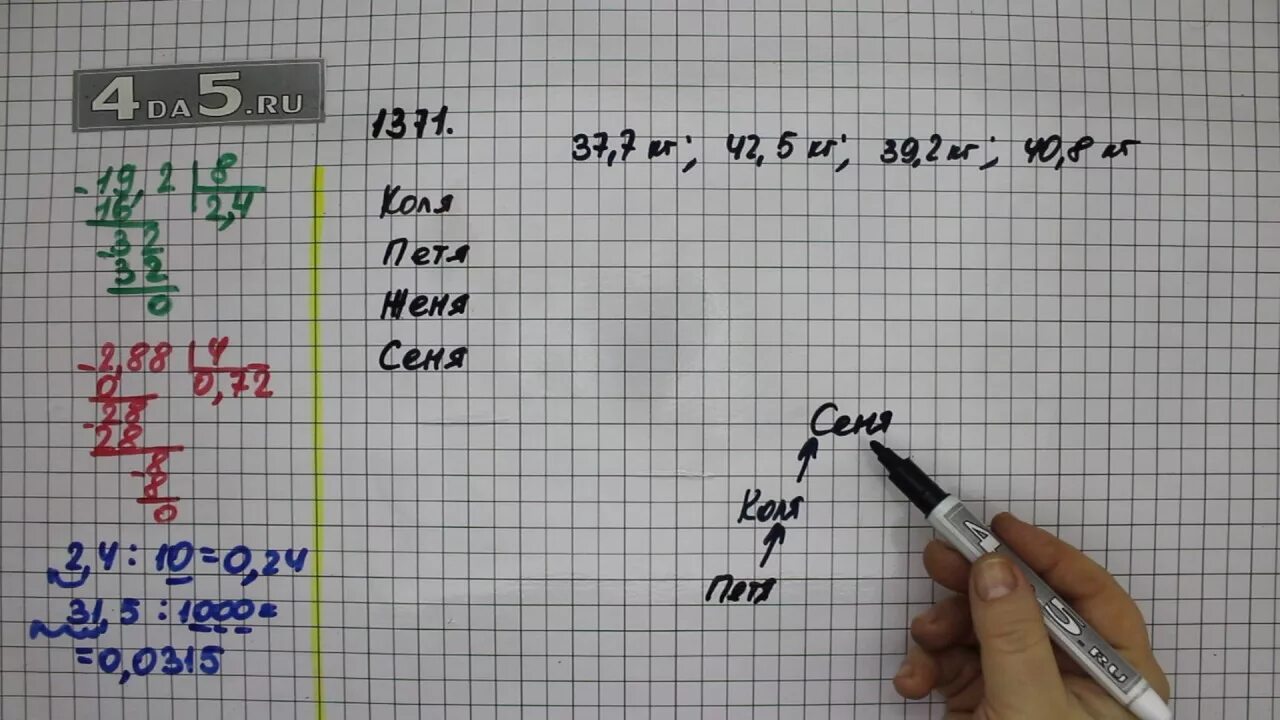 4DA5.RU
-19,2 | 8
16 2,4
-32
32
0
-2,88 | 4
0 0,72
-28
28
-8
8
0
2,4 : 10 = 0,24
31,5 : 1000 =
= 0,0315
1371.
37,7 кг; 42,5 кг; 39,2 кг; 40,8 кг
Коля
Петя
Женя
Сеня
Сеня
Коля
Петя
4
5.RU